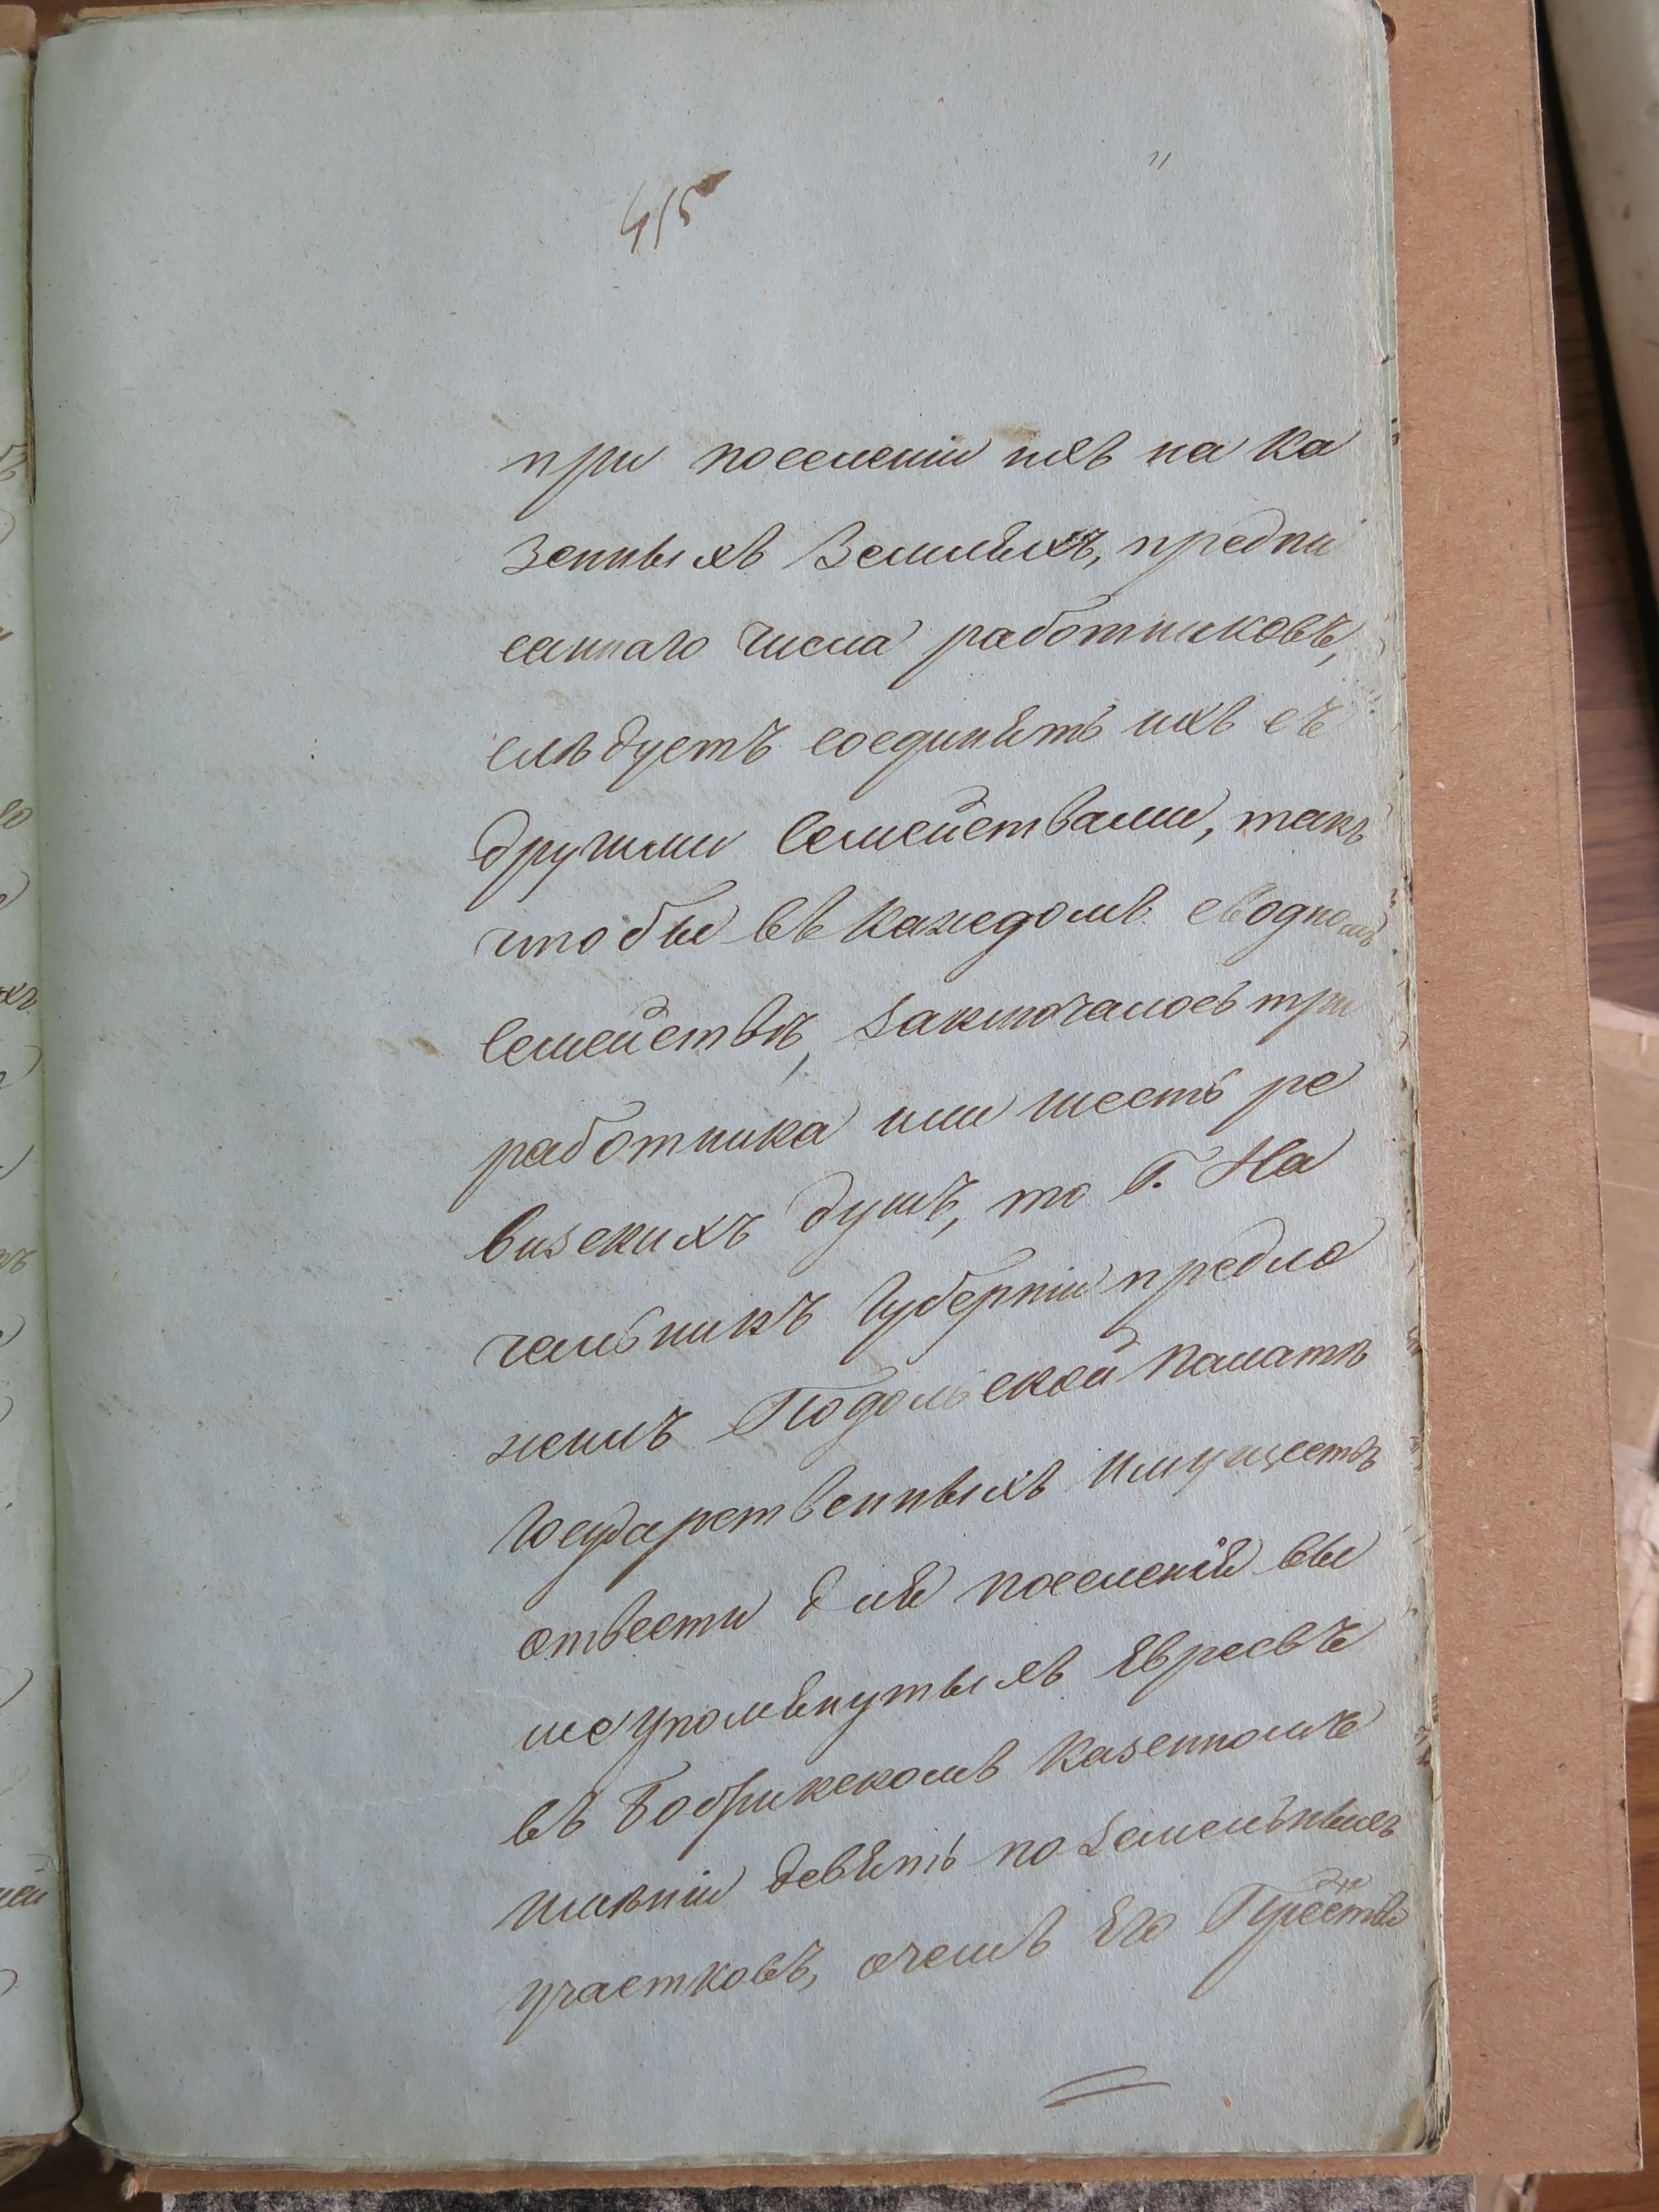 415
при поселеніи ихъ на ка
зенныхъ земляхъ, предпи
саннаго числа работниковъ,
слѣдуетъ соединять ихъ съ
другими семействами, такъ
чтобы въ каждомъ сводномъ
семействѣ, заключалось три
работника или шесть ре
визскихъ душъ, то Г. На
чальникъ Губерніи предло
жилъ Подольской Палатѣ
Государственныхъ Имуществъ
отвести для поселенія вы
шеупомянутыхъ Евреевъ
въ Бобрикскомъ Казенномъ
имѣніи девять поземельныхъ
участковъ, очемъ Его